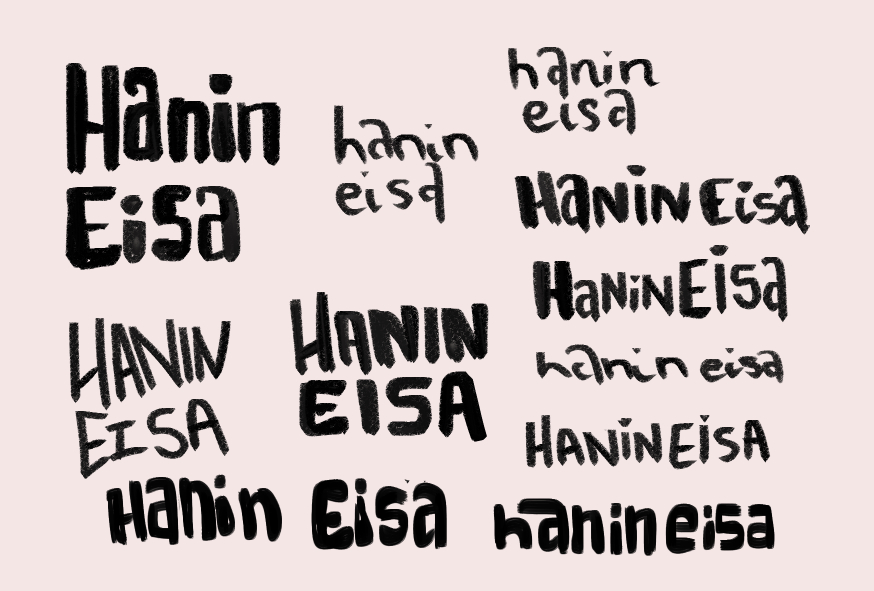 Hanin
Eisa
hanin
eisa
hanin
eisa
HaNiN Eisa
HaNiN EiSa
hanin eisa
HANiN EiSA
HANIN
EISA
HANIN
EISA
Hanin Eisa
hanin eisa